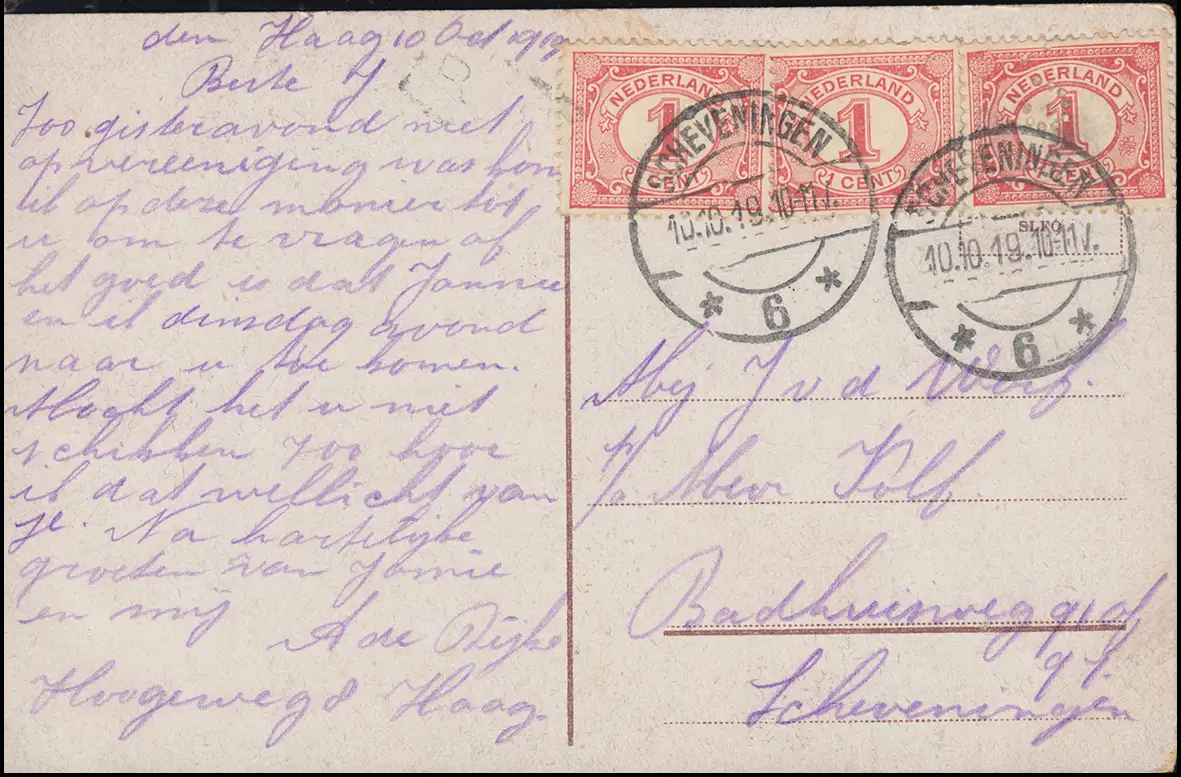 den Haag 10 Oct 1919
Beste J
Zoo gisteravond niet
op vereeniging was kom
ik op deze manier tot
u om te vragen of
het goed is dat Jannie
en ik dinsdag avond
naar u toe komen.
Mocht het u niet
schikken zoo hoor
ik dat wellicht van
je. Na hartelijke
groeten van Jannie
en mij
A de
Hoogeweg 8 Haag.
NEDERLAND
1
CENT
NEDERLAND
1
1 CENT
NEDERLAND
1
SCHEVENINGEN
10.10.19.10-11V.
* 6 *
SCHEVENINGEN
10.10.19.10-11V.
* 6 *
Mej J v d
p/a Mevr Kolf.
Badhuisweg 91 of
97.
Scheveningen